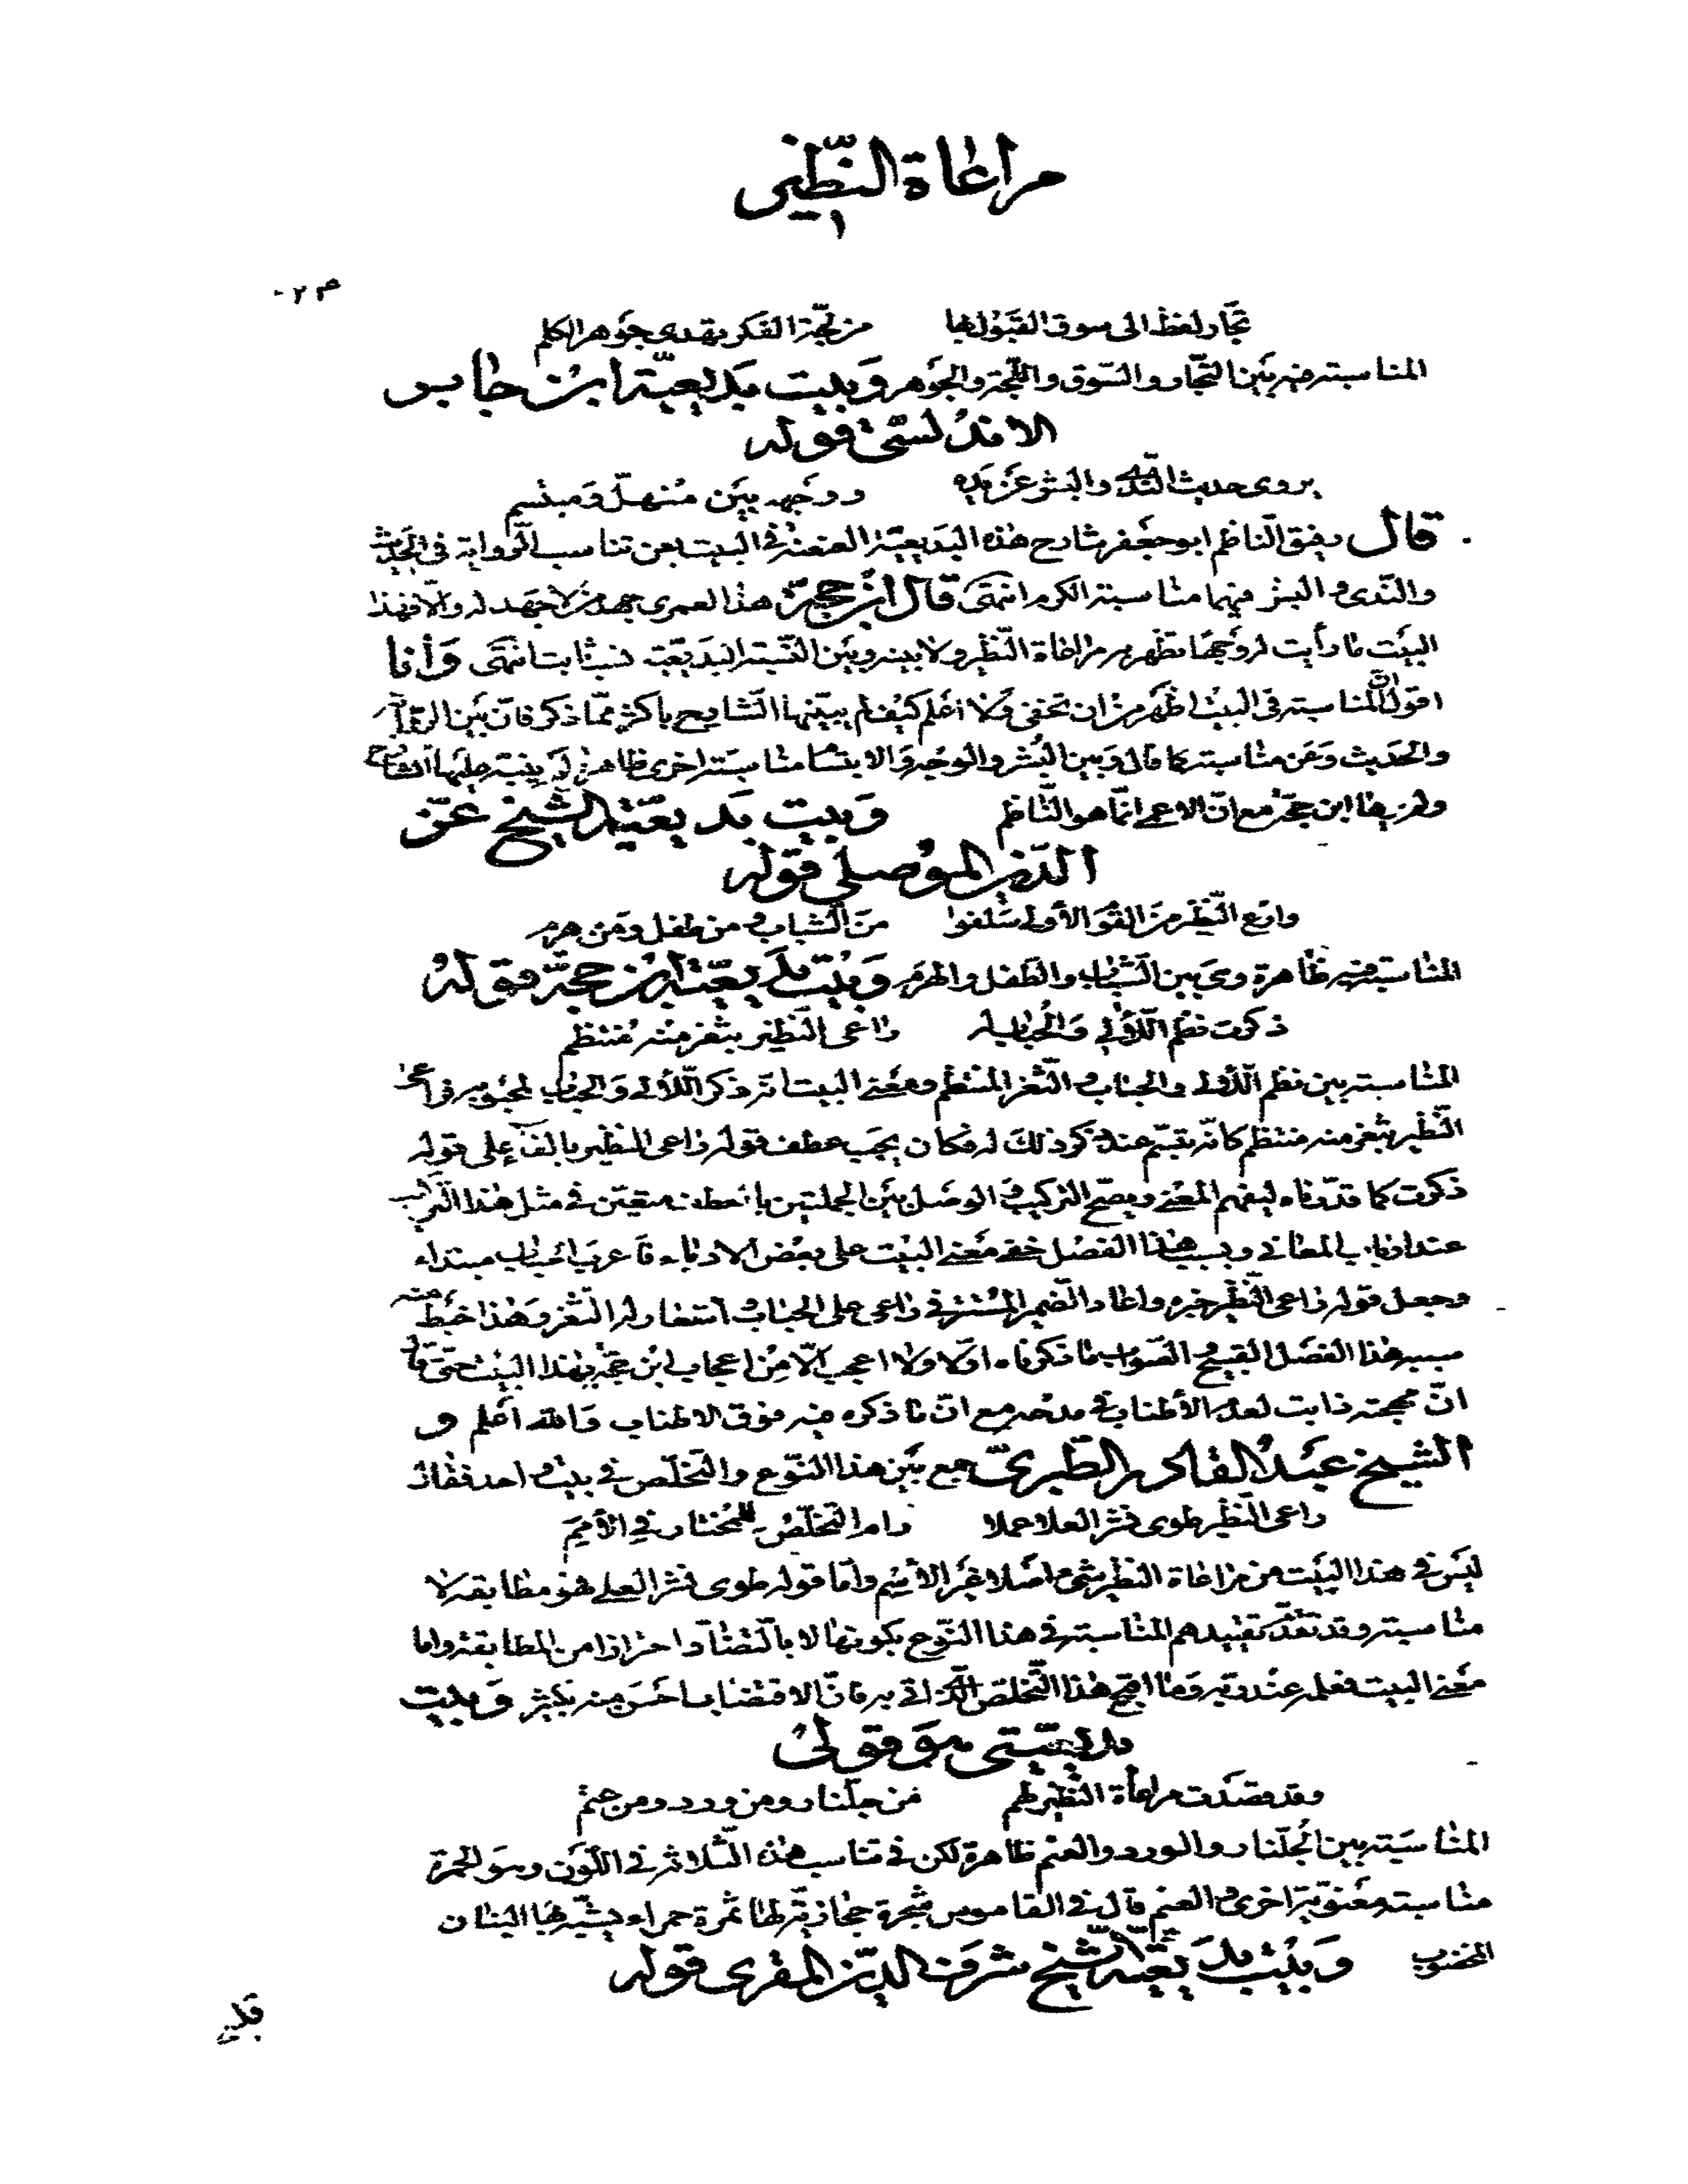 مراعاة النّظير
تجّار لفظ الى سوق القبول بها من لجّة الفكر تهدى جوهر الكلم
المناسبة فيه بين التجّار والسّوق واللّجّة والجوهر وبيت بديعيّة ابن جابر
الاندلسىّ قوله
يروى حديث النّدى والبشر عن يده ووجهه بين منهلّ ومبتسم
قال رفيق النّاظم ابو جعفر شارح هذه البديعيّة العنعنة فى البيت عن تناسب الرّواية فى الحديث
والنّدى والبشر فيهما مناسبة الكرم انتهى قال ابن حجّة هذا لعمرى جهد من لا جهد له والّا فهذا
البيت ما رأيت له وجها تظهر به مراعاة النّظير ولا بينه وبين التّسمية البديعيّة نسبة ثابتة انتهى وأنا
اقول انّ المناسبة فى البيت اظهر من ان تخفى ولا اعلم كيف لم يبيّنها الشّارح باكثر ممّا ذكر فانّ بين الرّواية
والحديث وعن مناسبة كما قال وبين البشر والوجه والابتسام مناسبة اخرى ظاهرة لم ينبّه عليها الشّارح
ولم يرها ابن حجّة مع انّ الاعمى انّما هو النّاظم وبيت بديعيّة الشّيخ عزّ
الدّين الموصلى قوله
وارع النّظير من القوم الأولى سلفوا من الشّباب ومن طفل ومن هرم
المناسبة فيه ظاهرة وهى بين الشّباب والطّفل والهرم وبيت بديعيّة ابن حجّة قوله
ذكرت نظم اللّآلى والحباب له راعى النّظير بثغر منه منتظم
المناسبة بين نظم اللّآلى والحباب والثّغر المنتظم ومعنى البيت انّه ذكر اللّآلى والحباب لمحبوبه فراعى
النّظير بثغر منه منتظم كانّه تبسّم عند ذكر ذلك له فكان يجب عطف قوله راعى النظير بالفاء على قوله
ذكرت كما قدّرناه ليفهم المعنى ويصحّ التركيب والوصل بين الجملتين بالعطف متعيّن فى مثل هذا التّركيب
عند ارباب المعانى وبسبب هذا الفصل خفى معنى البيت على بعض الادباء فاعرب الحباب مبتداء
وجعل قوله راعى النّظير خبره واعاد الضّمير المستتر فى راعى على الحباب واستعار له الثّغر وهذا خبط منه
سببه هذا الفصل القبيح والصّواب ما ذكرناه اوّلا ولا اعجب الّا من اعجاب ابن حجّة بهذا البيت حتّى قال
انّ مهجته ذابت لعدم الأطناب فى مدحه مع انّ ما ذكره فيه فوق الاطناب والله اعلم و
الشيخ عبد القادر الطّبرىّ جمع بين هذا النّوع والتّخلّص فى بيت واحد فقال
راعى النّظير طوى نشر العلا عملا رام التّخلّص للمختار فى الأمم
ليس فى هذا البيت من مراعاة النظير شىء اصلا غير الأسم وامّا قوله طوى نشر العلى فهو مطابقة لا
مناسبة وقد تقدّم تقييدهم المناسبة فى هذا النّوع بكونها لا بالتّضادّ احترازا من المطابقة واما
معنى البيت فعلمه عند ربّه وما اقبح هذا التّخلّص الّذى اتى به فانّ الاقتضاب احسن منه بكثير وبيت
بديعيّتى هو قولى
وقد قصدت مراعاة النّظير لهم من جلّنار ومن ورد ومن عنم
المناسبة بين الجلّنار والورد والعنم ظاهرة لكن فى تناسب هذه الثّلاثة فى اللّون وهو الحمرة
مناسبة معنويّة اخرى والعنم قال فى القاموس شجرة حجازيّة لها ثمرة حمراء يشبّه بها البنان
المخضوب وبيت بديعيّة الشّيخ شرف الدّين المقرى قوله